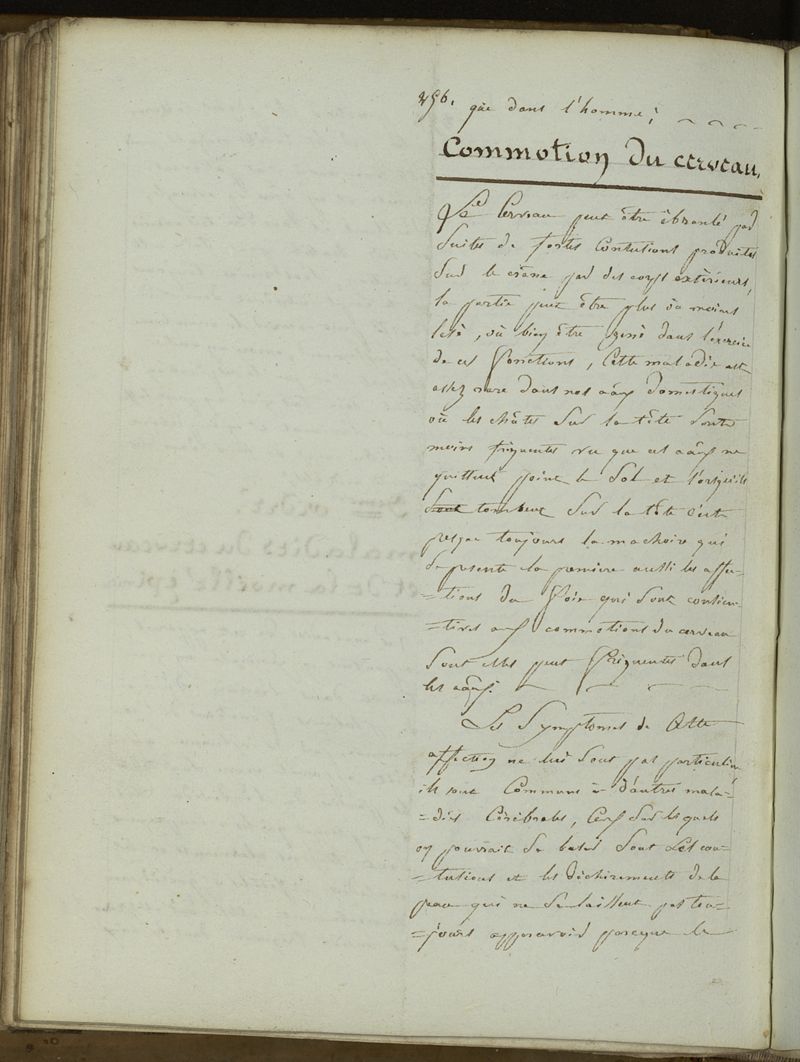 256. que dans l'homme;
Commotion Du cerveau,
Le Cerveau peut être ébranlé par
Suites de fortes Contusions produites
Sur le crâne par des corps extérieurs,
la partie peut être plus ou moins
lésé, où bien être géné dans l'éxercice
de ces fonctions, Cette maladie est
assez rare dans nos aâux domestiques
où les chûtes Sur la tête Sont
moins fréquentes vu que ces aâux ne
quittent point le Sol et lorsqu'ils
tombent Sur la tête c'est
presque toujours la machoire qui
Se présente la première aussi les affec=
=tions du foie qui Sont consecu
=tives aux commotions du cerveau
Sont elles peut fréquentes dans
les aâux.
Les Symptomes de Cette
affection ne lui Sont pas particuliers
ils sont Communs à d'autres mala=
=dies Cérébrales, Ceux Sur lesquels
on pourrait Se baser Sont Les con=
=tusions et les déchirements de la
peau qui ne Se laissent pas tou=
=jours appercevoir parceque le